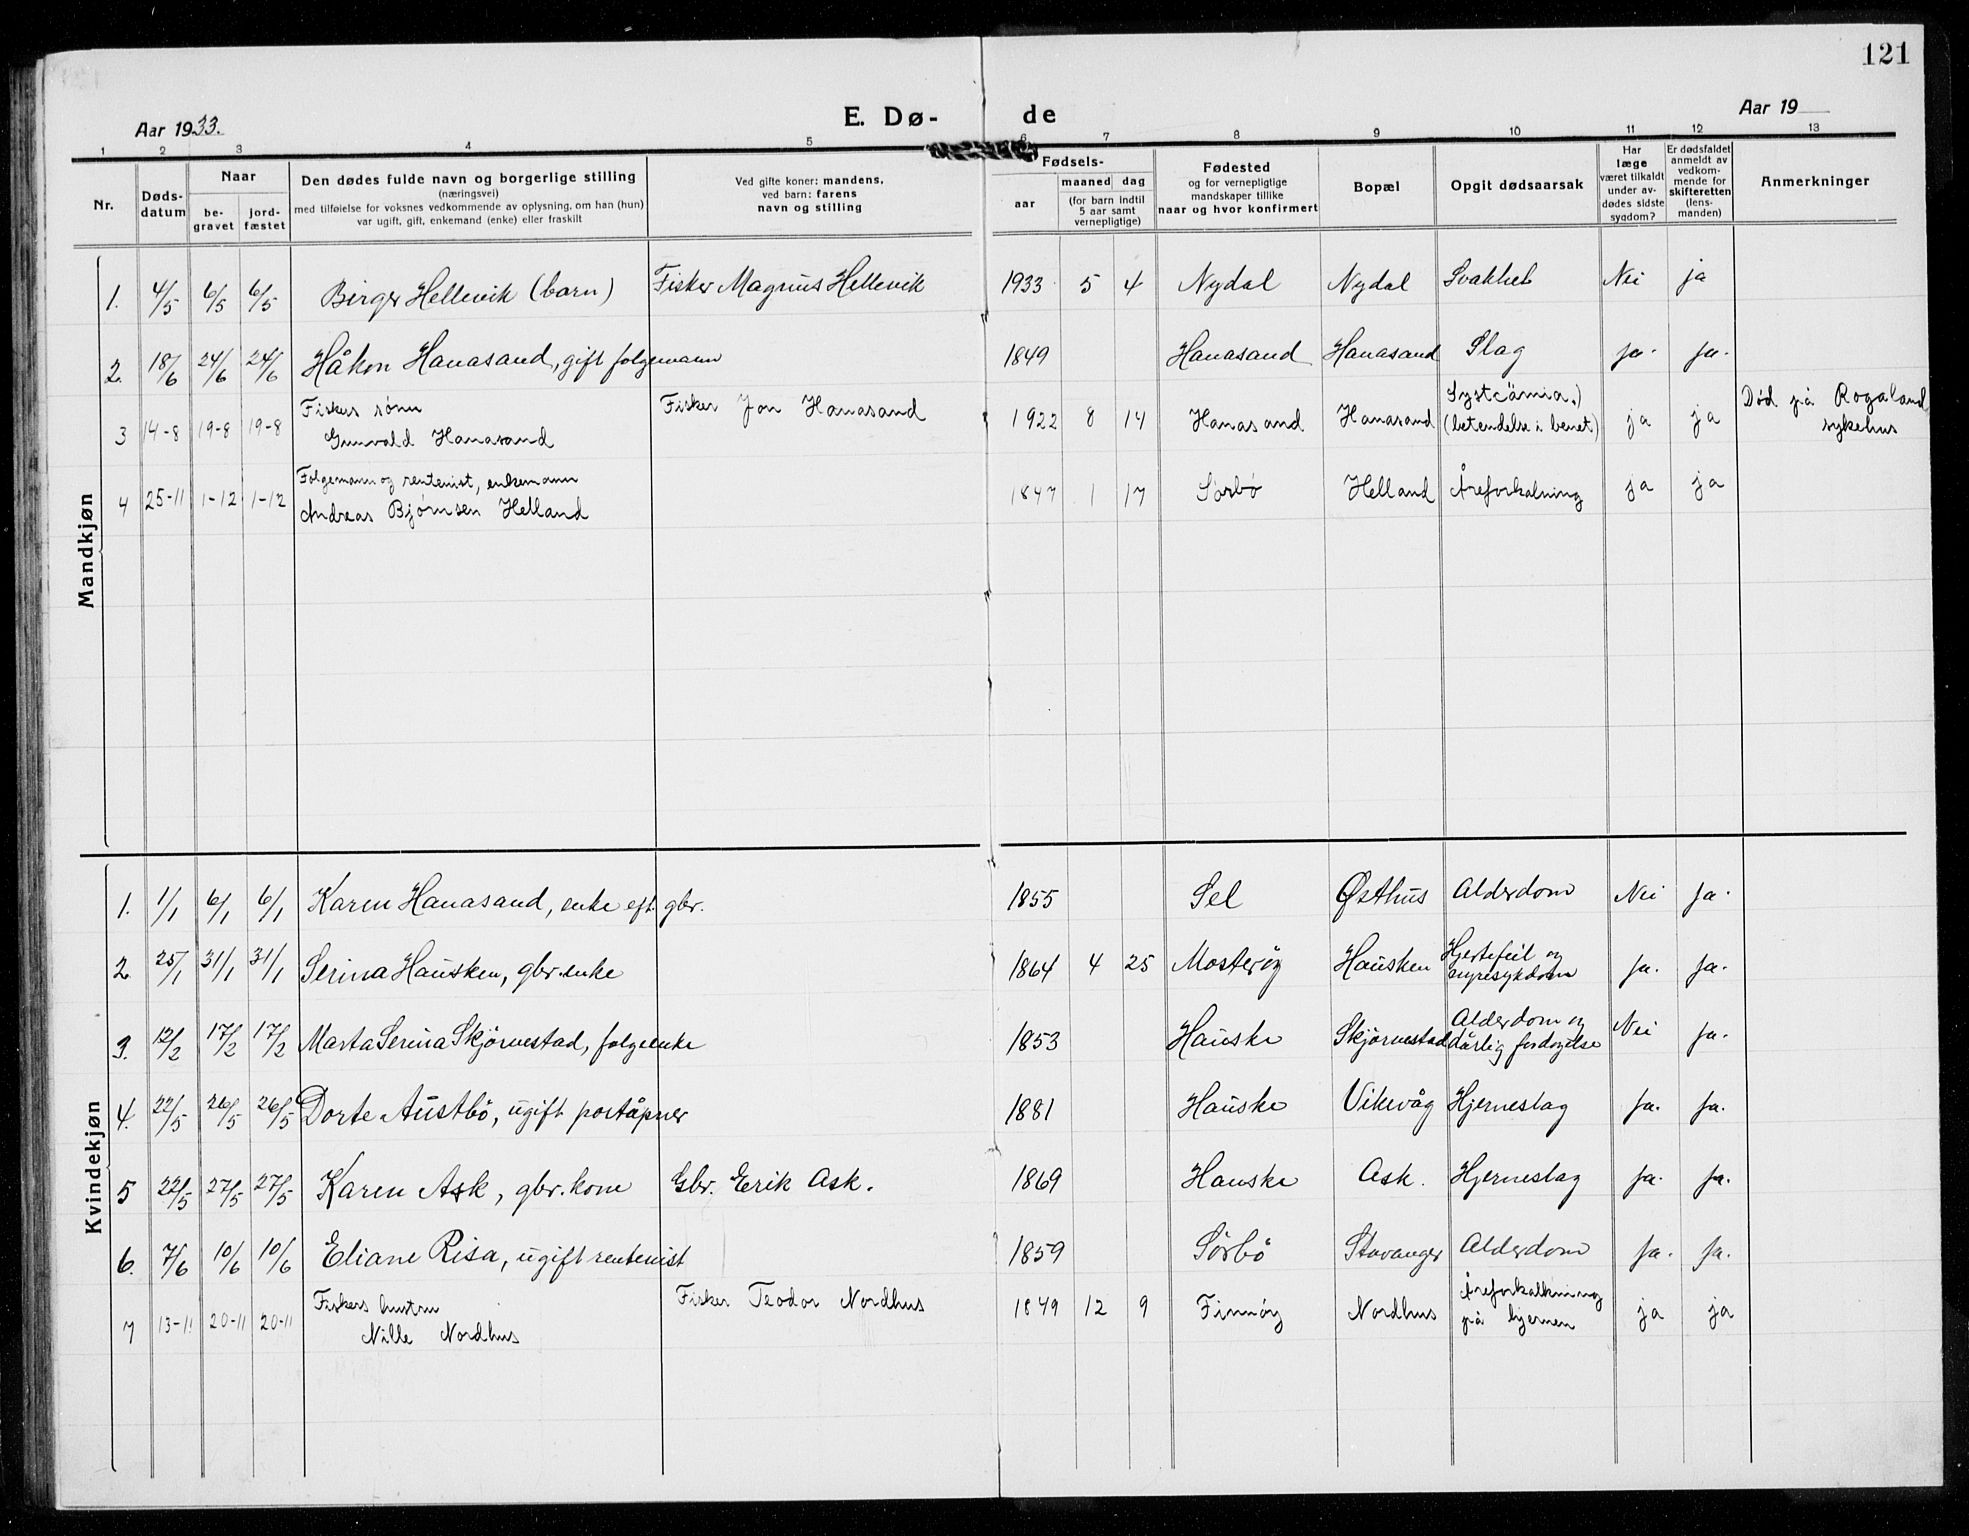 121
Aar 1933.
E. Dø-
de
Aar 19
1 2 3 4 5 6 7 8 9 10 11 12 13
Nr.
Døds-
datum
Naar
be-
gravet
jord-
fæstet
Den dødes fulde navn og borgerlige stilling
(næringsvei)
med tilføielse for voksnes vedkommende av oplysning, om han (hun)
var ugift, gift, enkemand (enke) eller fraskilt
Ved gifte koner: mandens,
ved barn: farens
navn og stilling
Fødsels-
aar
maaned dag
(for barn indtil
5 aar samt
vernepligtige)
Fødested
og for vernepligtige
mandskaper tillike
naar og hvor konfirmert
Bopæl
Opgit dødsaarsak
Har
læge
været tilkaldt
under av-
dødes sidste
sygdom?
Er dødsfaldet
anmeldt av
vedkom-
mende for
skifteretten
(lens-
manden)
Anmerkninger
Mandkjøn
1. 4/5 6/5 6/5 Birger Hellevik (barn) Fisker Magnus Hellevik 1933 5 4 Nydal Nydal Svakhet Nei ja
2. 18/6 24/6 24/6 Håkon Hanasand, gift folgemann 1849 Hanasand Hanasand Slag ja. ja.
3 14-8 19-8 19-8 Fiskers sønn Fisker Jon Hanasand 1922 8 14 Hanasand Hanasand ja ja Død på Rogaland
Gunvald Hanasand (betendelse i benet) sykehus
4 25-11 1-12 1-12 Folgemann og rentenist, enkemann 1847 1 17 Sørbø Helland Åreforkalning ja ja
Andreas Bjørnsen Helland
Kvindekjøn
1. 1/1 6/1 6/1 Karen Hanasand, enke eft. gbr. 1855 Sel Østhus Alderdom Nei ja.
2 25/1 31/1 31/1 Serina Hausken, gbr.enke 1864 4 25 Mosterøy Hausken Hjertefeil og ja. ja.
nyresykdom
3. 12/2 17/2 17/2 Marta Serina Skjørnestad, folgeenke 1853 Hauske Skjørnestad Alderdom og Nei ja.
dårlig fordøyelse
4. 22/5 26/5 26/5 Dorte Austbø, ugift poståpner 1881 Hauske Vikevåg Hjerneslag ja. ja.
5 22/5 27/5 27/5 Karen Ask, gbr. kone Gbr. Erik Ask. 1869 Hauske Ask. Hjerneslag ja. ja.
6. 7/6 10/6 10/6 Eliane Risa, ugift rentenist 1859 Sørbø Stavanger Alderdom ja. ja.
7 13-11 20-11 20-11 Fiskers hustru Fisker Teodor Nordhus 1849 12 9 Finnøy Nordhus Åreforkalkning ja ja
Nille Nordhus på hjernen